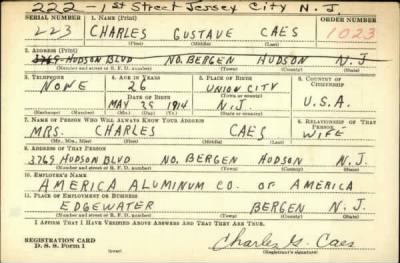 222 - 1st Street Jersey City N.J.
SERIAL NUMBER 1. NAME (Print) ORDER NUMBER
223 CHARLES GUSTAVE CAES 1023
(First) (Middle) (Last)
2. ADDRESS (Print)
3769 HUDSON BLVD NO. BERGEN HUDSON N.J
(Number and street or R. F. D. number) (Town) (County) (State)
3. TELEPHONE 4. AGE IN YEARS 5. PLACE OF BIRTH 6. COUNTRY OF CITIZENSHIP
NONE 26 UNION CITY
DATE OF BIRTH (Town or county)
MAY 29 1914 N.J. U.S.A.
(Exchange) (Number) (Mo.) (Day) (Yr.) (State or country)
7. NAME OF PERSON WHO WILL ALWAYS KNOW YOUR ADDRESS 8. RELATIONSHIP OF THAT PERSON
MRS. CHARLES CAES WIFE
(Mr., Mrs., Miss) (First) (Middle) (Last)
9. ADDRESS OF THAT PERSON
3769 HUDSON BLVD NO. BERGEN HUDSON N.J.
(Number and street or R. F. D. number) (Town) (County) (State)
10. EMPLOYER'S NAME
AMERICA ALUMINUM CO. OF AMERICA
11. PLACE OF EMPLOYMENT OR BUSINESS
EDGEWATER BERGEN N.J.
(Number and street or R. F. D. number) (Town) (County) (State)
I AFFIRM THAT I HAVE VERIFIED ABOVE ANSWERS AND THAT THEY ARE TRUE.
REGISTRATION CARD
D. S. S. Form 1
Charles G. Caes
(Registrant's signature)